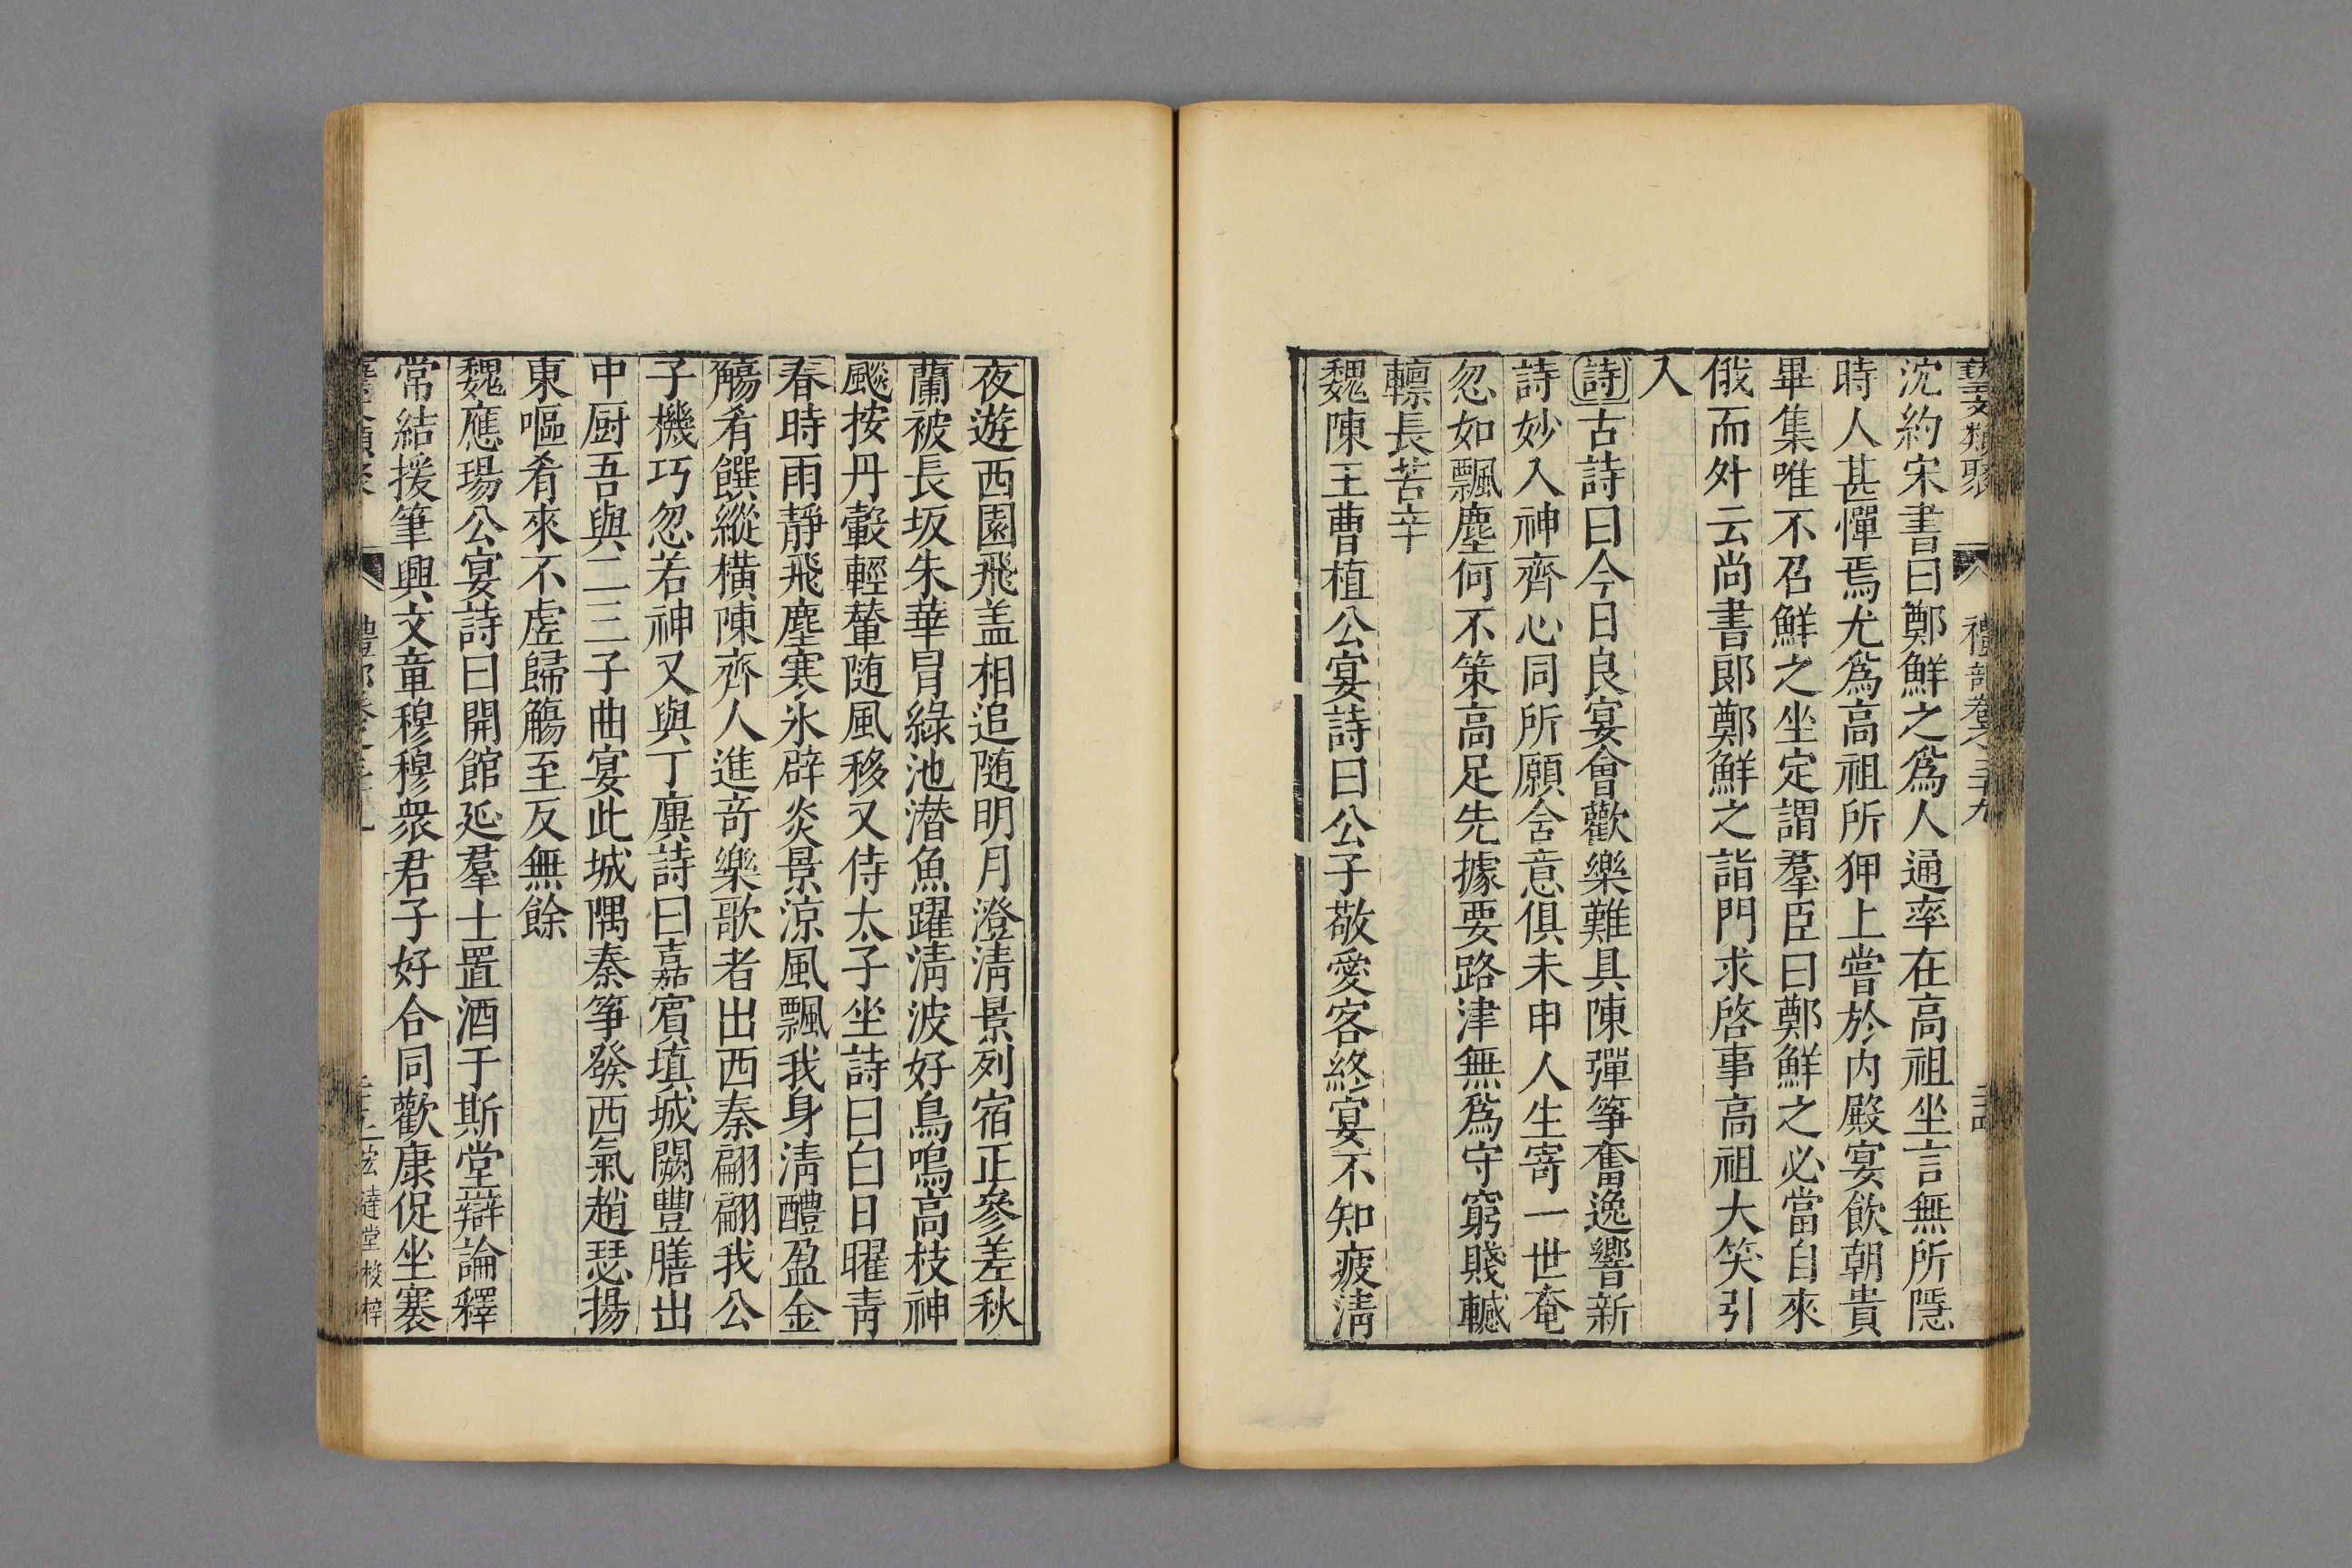 藝文類聚 禮部卷之三十九
沈約宋書曰鄭鮮之爲人通率在高祖坐言無所隱
時人甚憚焉尤爲高祖所狎上嘗於内殿宴飲朝貴
畢集唯不召鮮之坐定謂羣臣曰鄭鮮之必當自來
俄而外云尚書郎鄭鮮之詣門求啓事高祖大笑引
入
詩古詩曰今日良宴會歡樂難具陳彈筝奮逸響新
詩妙入神齊心同所願含意俱未申人生寄一世奄
忽如飄塵何不策高足先據要路津無爲守窮賤轗
轅長苦辛
魏陳王曹植公宴詩曰公子敬愛客終宴不知疲淸
夜遊西園飛盖相追随明月澄淸景列宿正參差秋
蘭被長坂朱華冐綠池潜魚躍淸波好鳥鳴高枝神
飈按丹轂輕輦随風移又侍太子坐詩曰白日曜青
春時雨靜飛塵寒氷辟炎景涼風飄我身淸醴盈金
觴肴饌縱横陳齊人進竒樂歌者出西秦翩翩我公
子機巧忽若神又與丁廙詩曰嘉賓填城闕豐膳出
中厨吾與二三子曲宴此城隅秦筝發西氣趙瑟揚
東嘔肴來不虗歸觴至反無餘
魏應瑒公宴詩曰開館延羣士置酒于斯堂辯論釋
常結援筆興文章穆穆衆君子好合同歡康促坐褰
禮部 堂校梓